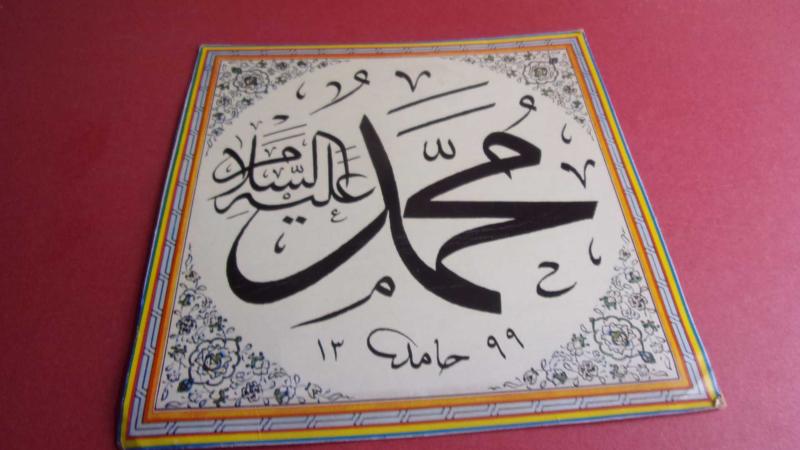 محمد عليه السلام
١٣ حامد ٩٩